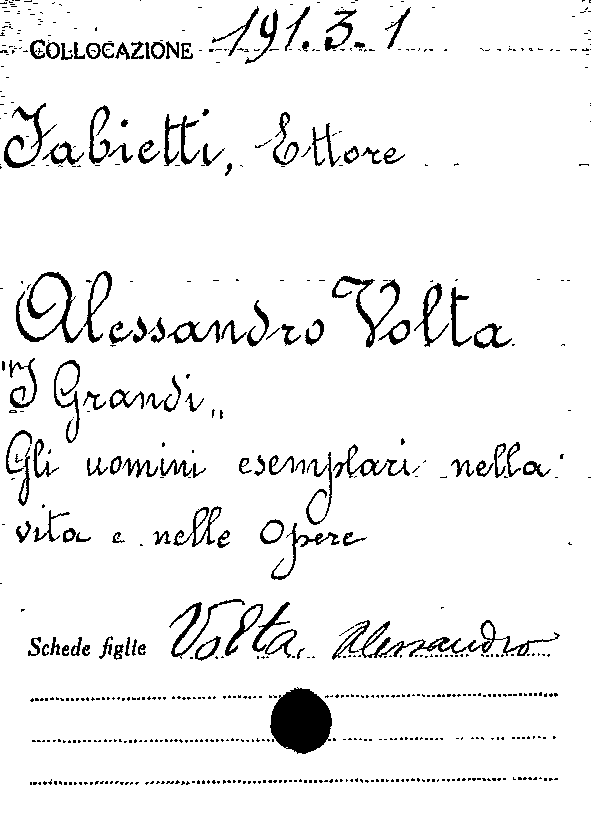 COLLOCAZIONE 191.3.1
Fabietti, Ettore
Alessandro Volta
"I Grandi„
Gli uomini esemplari nella
vita e nelle opere
Schede figlie Volta, Alessandro